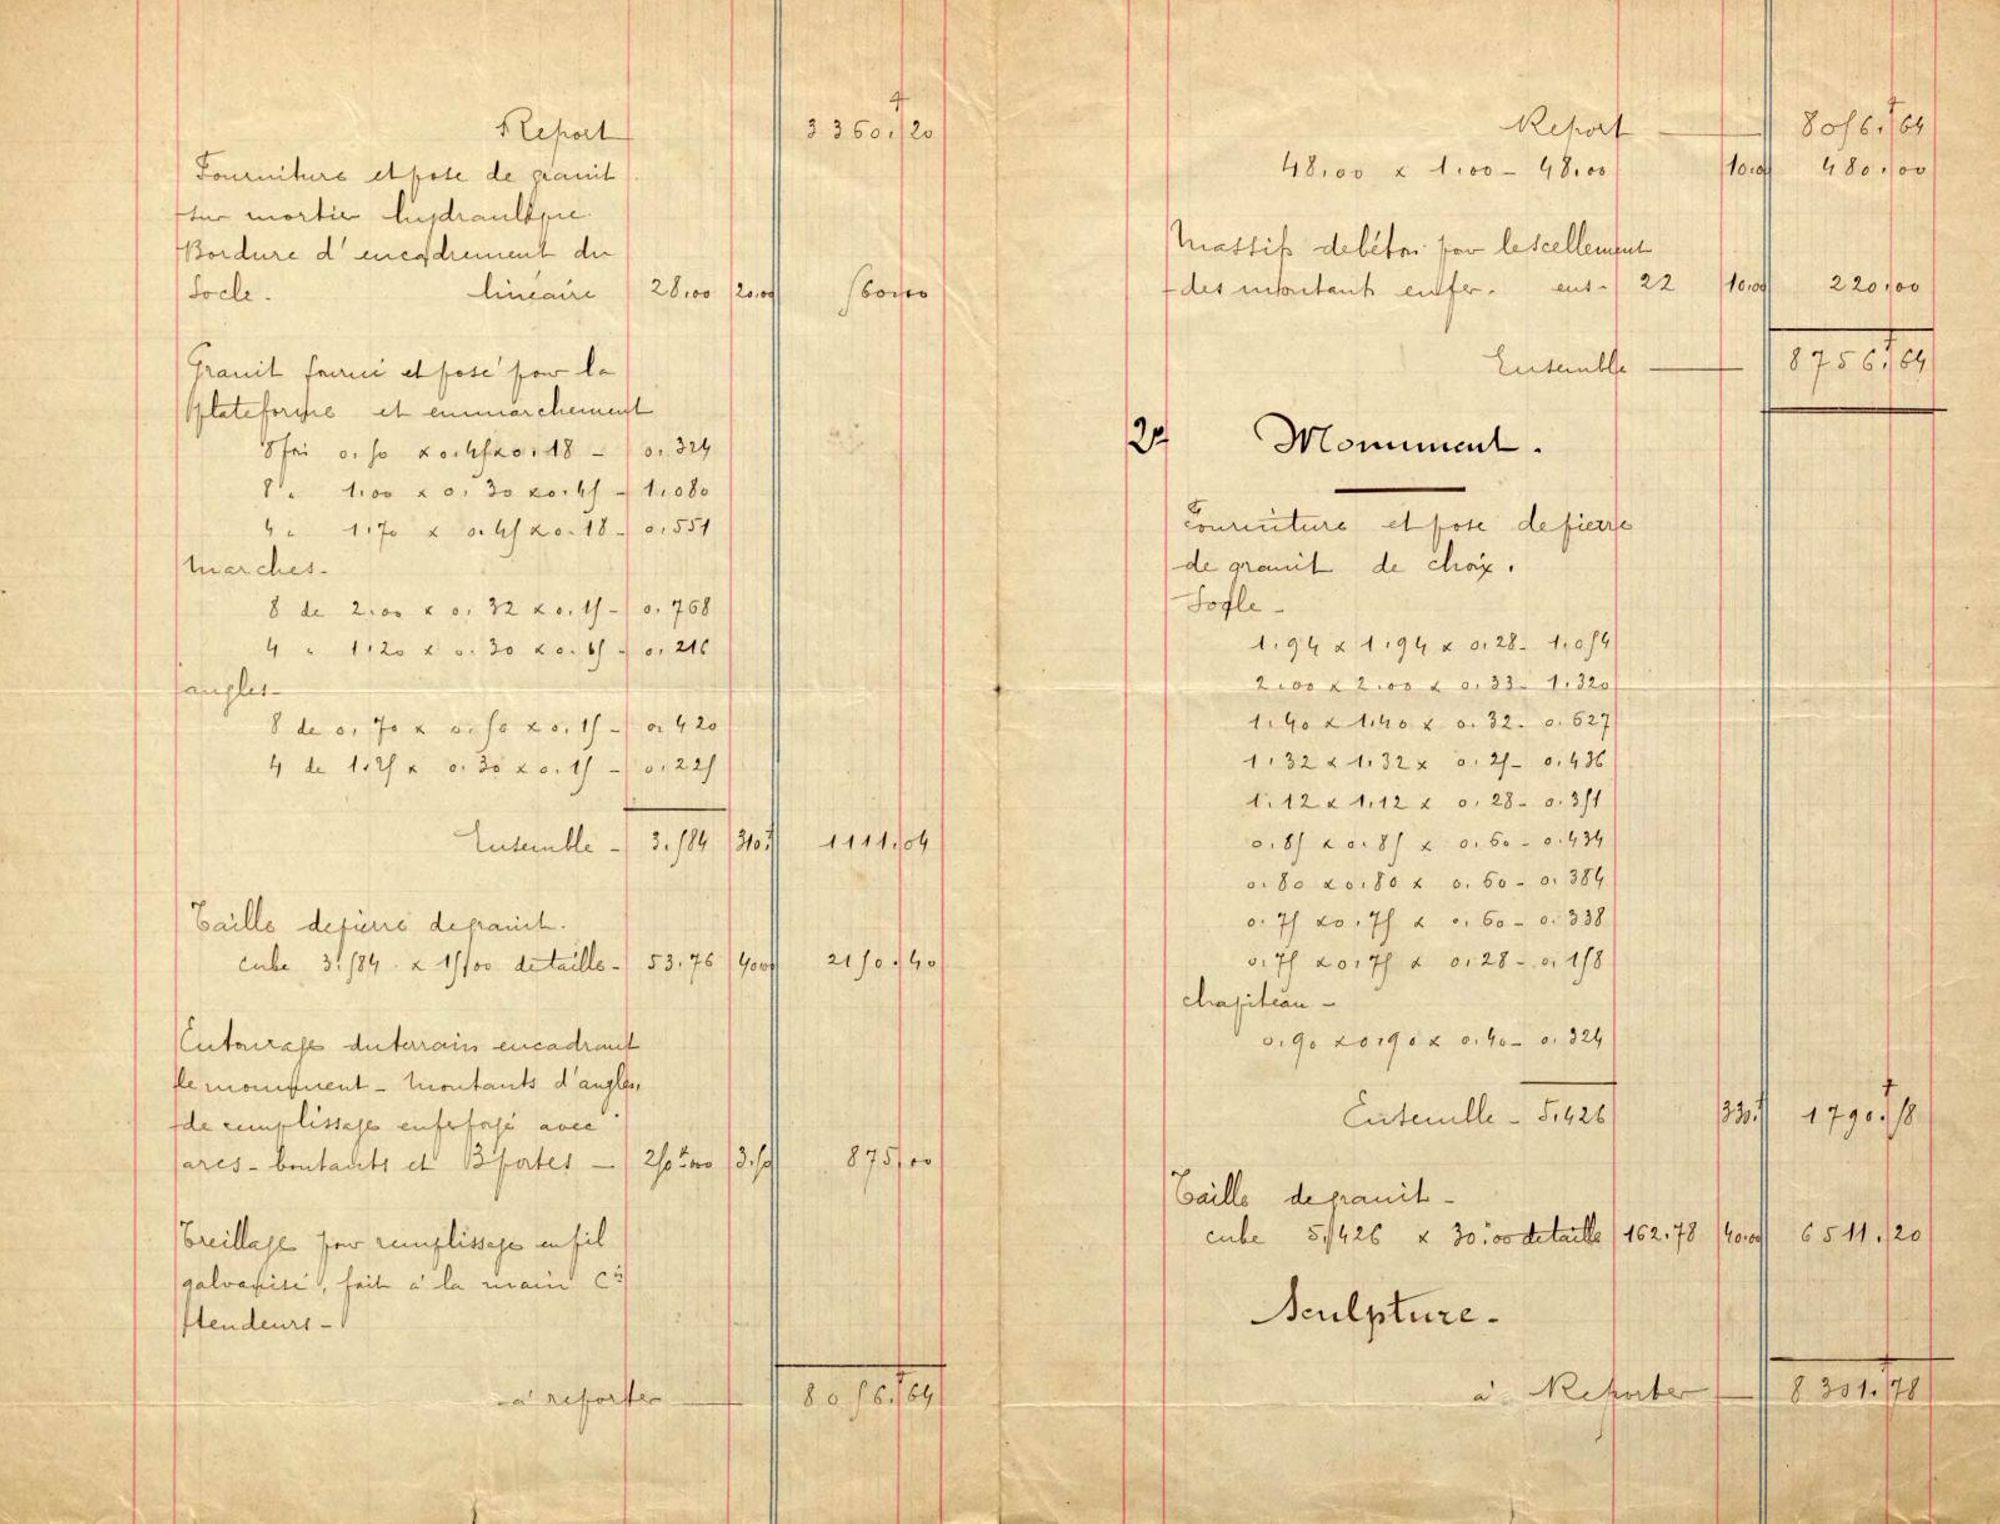 Report 3360,20
Fourniture et pose de granit
sur mortier hydraulique.
Bordure d'encadrement du
Socle. linéaire 28,00 20,00 560,00
Granit fourni et posé pour la
plateforme et emmarchement
8 fois 0.50 x 0.45 x 0.18 - 0.324
8 " 1.00 x 0.30 x 0.45 - 1.080
4 " 1.70 x 0.45 x 0.18 - 0.551
Marches -
8 de 2.00 x 0.32 x 0.15 - 0.768
4 " 1.20 x 0.30 x 0.15 - 0.216
angles -
8 de 0.70 x 0.50 x 0.15 - 0.420
4 de 1.25 x 0.30 x 0.15 - 0.225
Ensemble - 3.584 310f 1111,04
Taille de pierre de granit.
cube 3.584 x 15,00 de taille - 53.76 40,00 2150,40
Entourage du terrain encadrant
le monument - Montants d'angles,
de remplissage en fer forgé avec
arcs-boutants et 3 portes - 250k,00 3.50 875,00
Treillage pour remplissage en fil
galvanisé, fait à la main cis
tendeurs -
à reporter 8056,64
Report 8056,64
48,00 x 1,00 - 48,00 10,00 480,00
Massifs de béton pour le scellement
des montants en fer. ens - 22 10,00 220,00
Ensemble 8756,64
2e Monument.
Fourniture et pose de pierre
de granit de choix.
Socle -
1.94 x 1.94 x 0.28 - 1.054
2.00 x 2.00 x 0.33 - 1.320
1.40 x 1.40 x 0.32 - 0.627
1.32 x 1.32 x 0.25 - 0.436
1.12 x 1.12 x 0.28 - 0.351
0.85 x 0.85 x 0.60 - 0.434
0.80 x 0.80 x 0.60 - 0.384
0.75 x 0.75 x 0.60 - 0.338
0.75 x 0.75 x 0.28 - 0.158
chapiteau -
0.90 x 0.90 x 0.40 - 0.324
Ensemble - 5.426 330f 1790,58
Taille de granit -
cube 5,426 x 30,00 de taille 162.78 40,00 6511,20
Sculpture -
à Reporter 8301,78